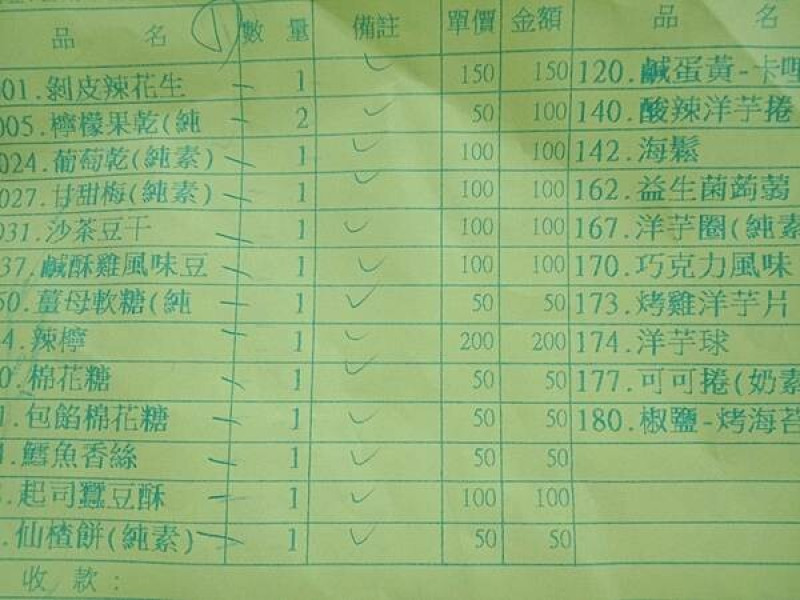 品 名 ① 數 量 備註 單價 金額 品 名
01.剝皮辣花生 1 150 150 120.鹹蛋黃-卡哩
005.檸檬果乾(純 2 50 100 140.酸辣洋芋捲
024.葡萄乾(純素) 1 100 100 142.海鬆
027.甘甜梅(純素) 1 100 100 162.益生菌蒟蒻
031.沙茶豆干 1 100 100 167.洋芋圈(純素
37.鹹酥雞風味豆 1 100 100 170.巧克力風味
50.薑母軟糖(純 1 50 50 173.烤雞洋芋片
4.辣檸 1 200 200 174.洋芋球
0.棉花糖 1 50 50 177.可可捲(奶素
1.包餡棉花糖 1 50 50 180.椒鹽-烤海苔
.鱈魚香絲 1 50 50
.起司蠶豆酥 1 100 100
.仙楂餅(純素) 1 50 50
收 款：